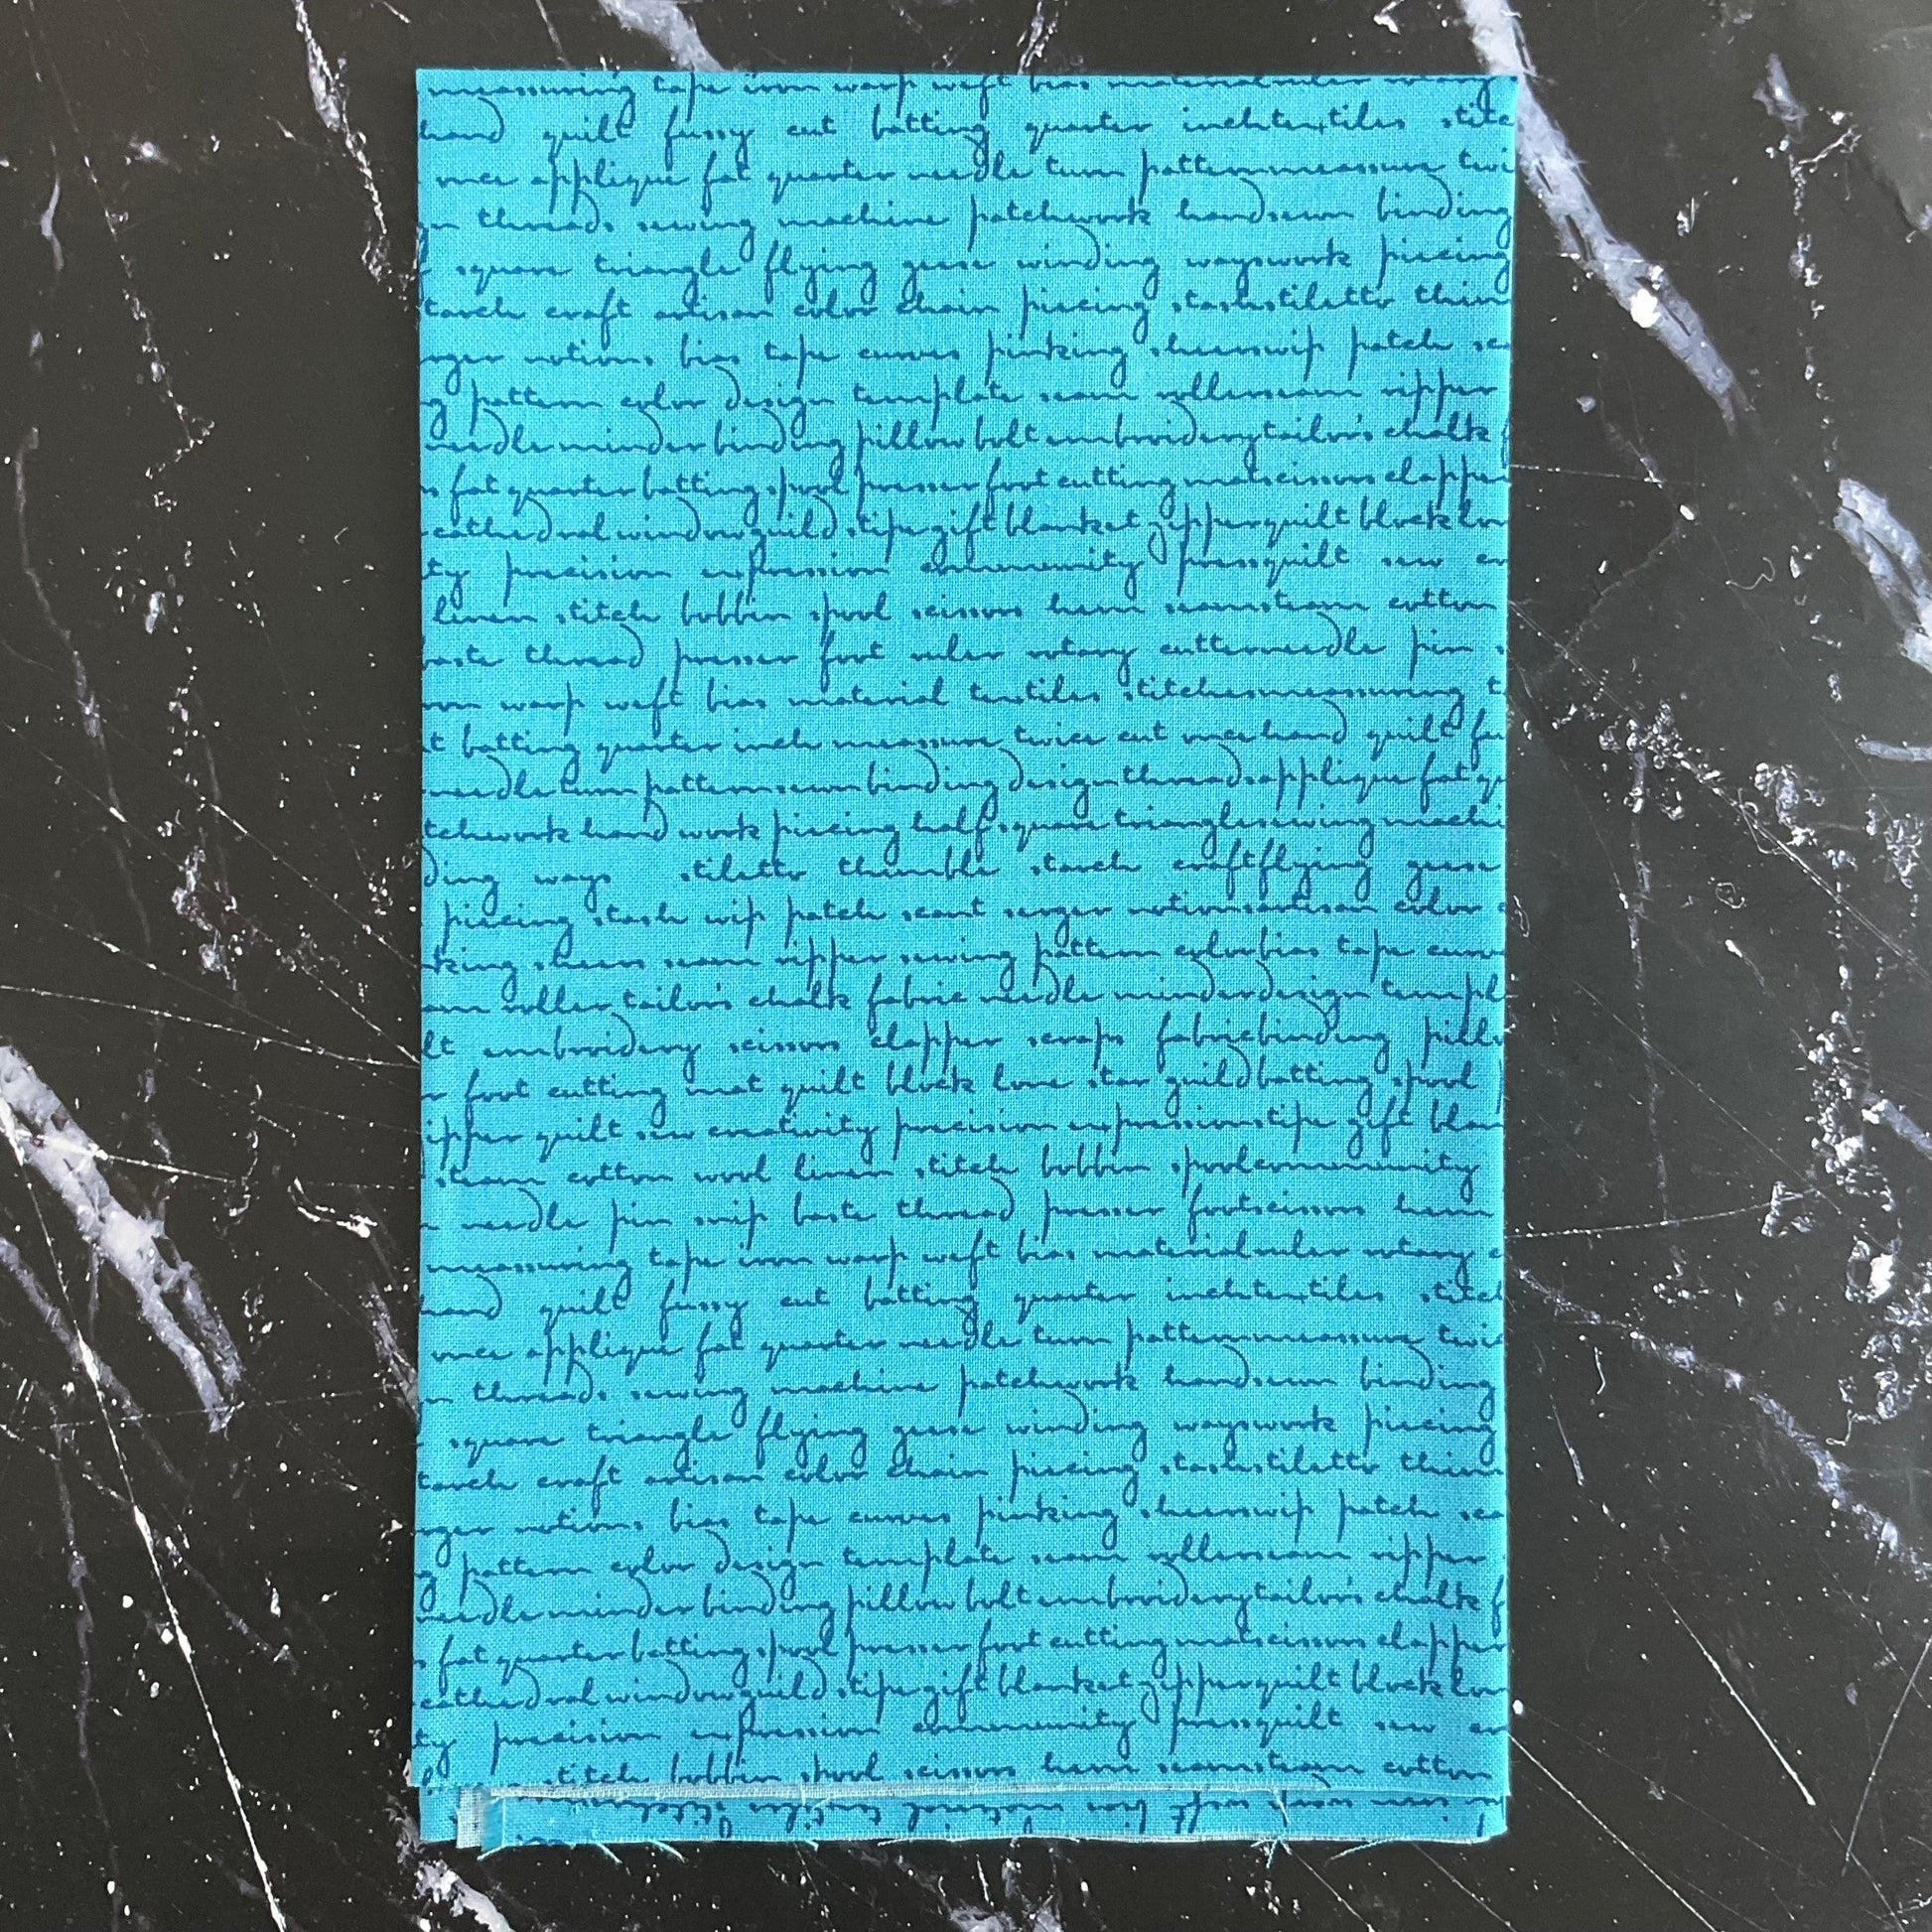 measuring tape iron warp weft bias materialruler rotary
hand quilt fussy cut batting quarter inchtextiles stitc
once applique fat quarter needle turn patternmeasure twi
gn threads sewing machine patchwork handsewn binding
f square triangle flying geese winding wayswork piecing
tarch craft artisan color chain piecing stashstiletto thim
rger notions bias tape curves pinking shearswip patch sca
g pattern color design template seam rollerseam ripper
needle minder binding pillow bolt embroidery tailor's chalk f
s fat quarter batting spool presser foot cutting mat scissors clapper
cathedral window guild stipe gift blanket zipper quilt block lon
ty precision expression community pressquilt sew cr
linen stitch bobbin spool scissors hem seamsteam cotton
baste thread presser foot ruler rotary cutterneedle pin s
iron warp weft bias material textiles stitchesmeasuring t
t batting quarter inch measure twice cut oncehand quilt fu
needle turn patternsewn binding design threads applique fat qu
tchwork hand work piecing half square trianglesewing machi
ding ways stiletto thimble starch craftflying geese
piecing stash wip patch scant serger notionsartisan color c
king shears seam ripper sewing pattern colorbias tape curv
am roller tailor's chalk fabric needle minderdesign templ
lt embroidery scissors clapper scraps fabricbinding pillo
r foot cutting mat quilt block lone star guildbatting spool
ipper quilt sew creativity precision expressionstipe gift blan
steam cotton wool linen stitch bobbin spoolcommunity
needle pin snip baste thread presser footscissors hem
measuring tape iron warp weft bias materialruler rotary c
hand quilt fussy cut batting quarter inchtextiles stitch
once applique fat quarter needle turn patternmeasure twic
n threads sewing machine patchwork handsewn binding
square triangle flying geese winding wayswork piecing
tarch craft artisan color chain piecing stashstiletto thim
rger notions bias tape curves pinking shearswip patch sca
g pattern color design template seam rollerseam ripper
needle minder binding pillow bolt embroidery tailor's chalk f
s fat quarter batting spool presser foot cutting mat scissors clapper
cathedral window guild stipe gift blanket zipper quilt block lon
ty precision expression community pressquilt sew cr
stitch bobbin spool scissors hem seamsteam cotton
iron warp weft bias material textiles stitches